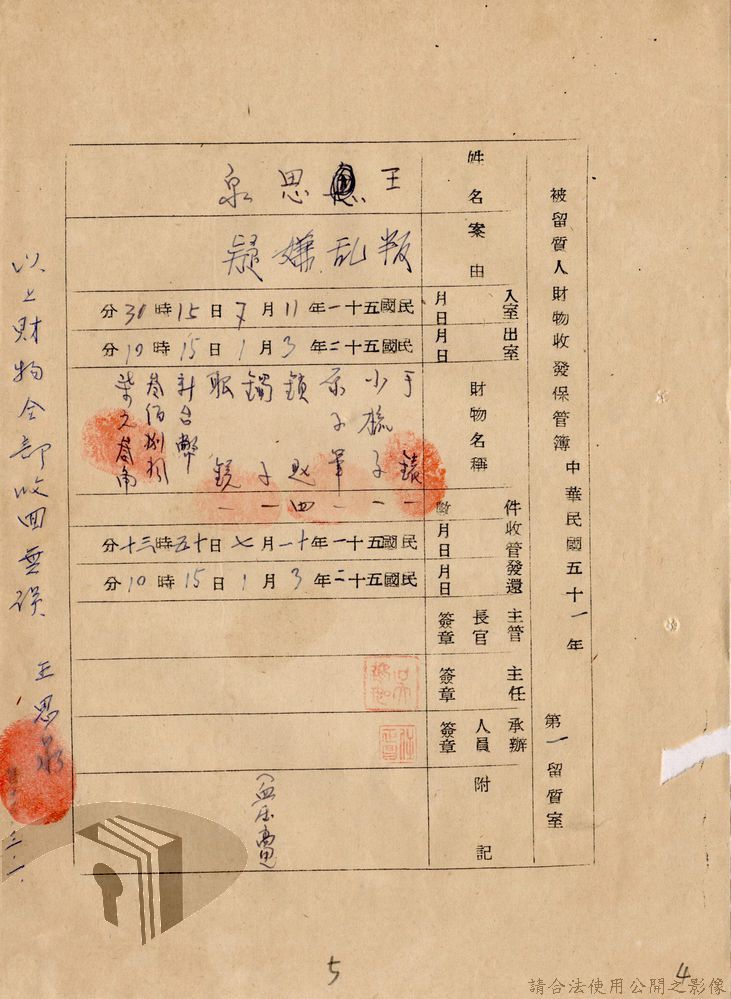 被留質人財物收發保管簿 中華民國五十一年 第一留質室
姓名 王思泉
案由 叛乱嫌疑
入室月日 民國五十一年11月7日15時30分
出室月日 民國五十二年3月1日15時10分
財物名稱 件數
手錶一
小梳子一
原子筆一
鎖匙四
鐲子一
眼鏡一
新台幣
叁佰捌拾
柒元叁角
收管月日 民國五十一年十一月七日十五時三十分
發還月日 民國五十二年3月1日15時10分
主管長官簽章
主任簽章
承辦人員簽章
附記
以上財物全部收回無誤 王思泉
三.一.
5
4
請合法使用公開之影像